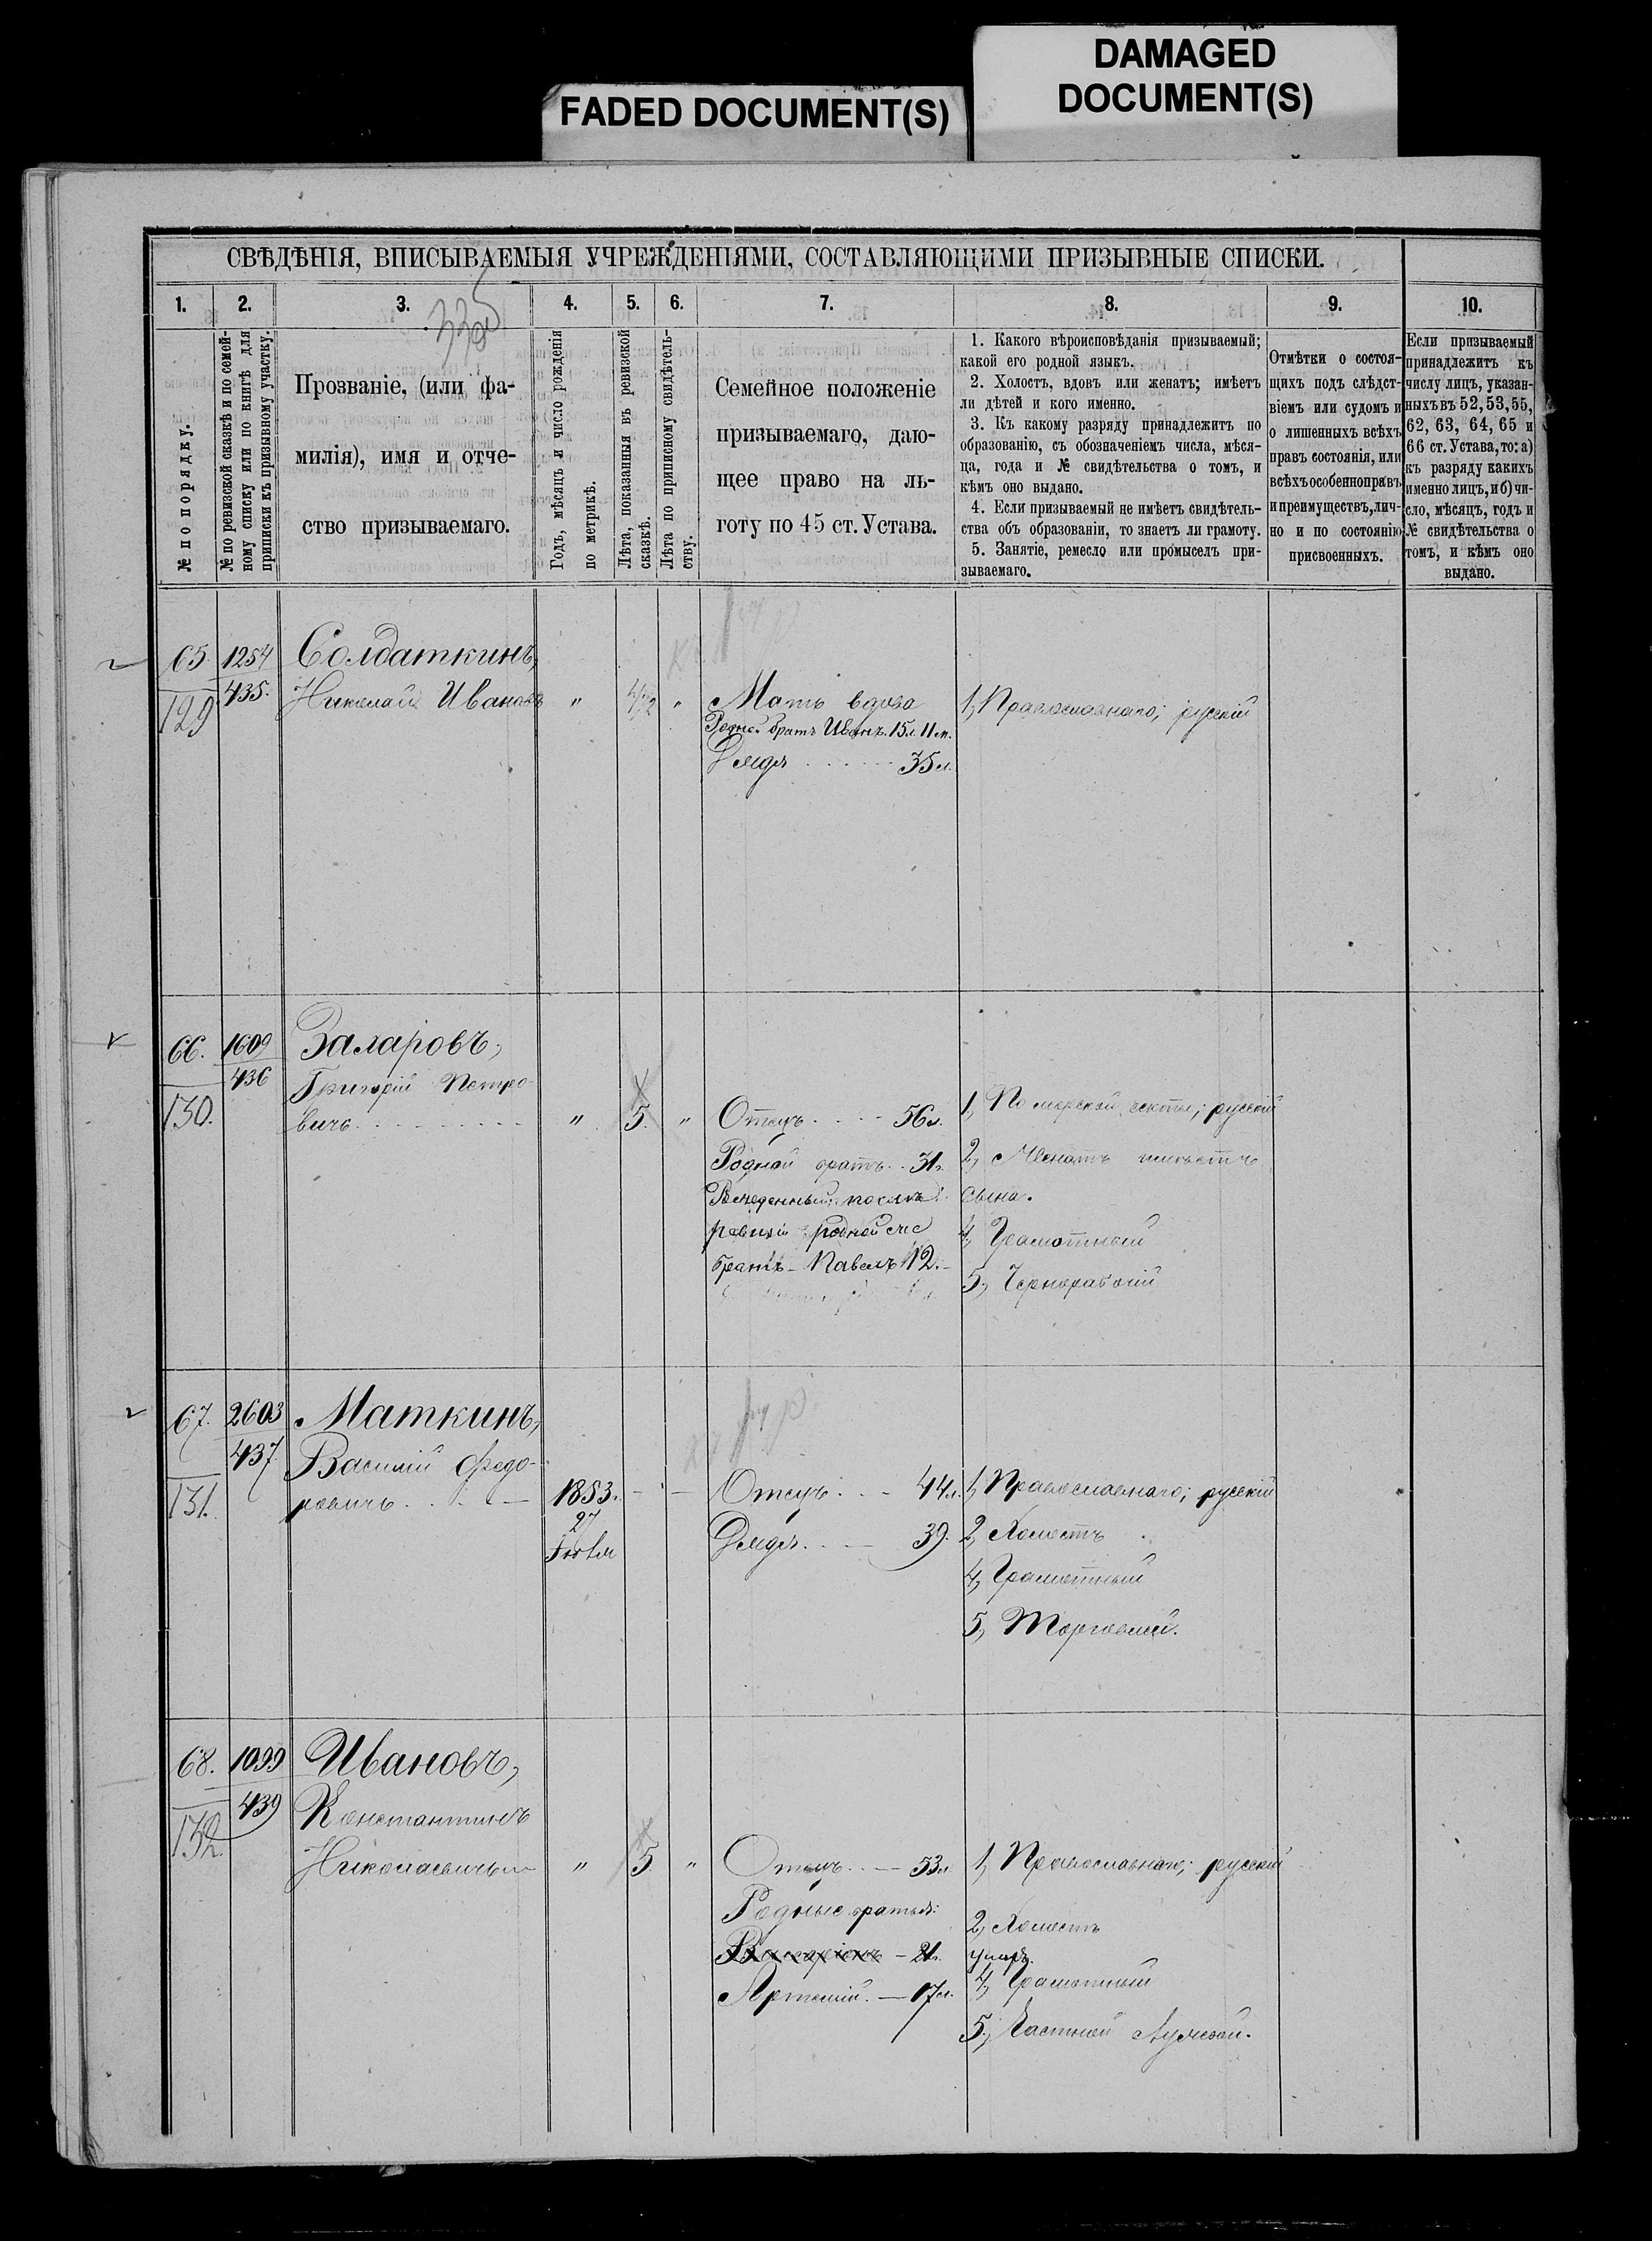 FADED DOCUMENT(S)
DAMAGED
DOCUMENT(S)
СВѢДѢНІЯ, ВПИСЫВАЕМЫЯ УЧРЕЖДЕНІЯМИ, СОСТАВЛЯЮЩИМИ ПРИЗЫВНЫЕ СПИСКИ.
1.
2.
3.
4.
5.
6.
7.
8.
9.
10.
№ по порядку.
№ по ревизской сказкѣ и по семей-
ному списку или по книгѣ для
приписки къ призывному участку.
Прозваніе, (или фа-
милія), имя и отче-
ство призываемаго.
Годъ, мѣсяцъ и число рожденія
по метрикѣ.
Лѣта, показанныя въ ревизской
сказкѣ.
Лѣта по приписному свидѣтель-
ству.
Семейное положеніе
призываемаго, даю-
щее право на ль-
готу по 45 ст. Устава.
1. Какого вѣроисповѣданія призываемый;
какой его родной языкъ.
2. Холостъ, вдовъ или женатъ; имѣетъ
ли дѣтей и кого именно.
3. Къ какому разряду принадлежитъ по
образованію, съ обозначеніемъ числа, мѣся-
ца, года и № свидѣтельства о томъ, и
кѣмъ оно выдано.
4. Если призываемый не имѣетъ свидѣтель-
ства объ образованіи, то знаетъ ли грамоту.
5. Занятіе, ремесло или промыселъ при-
зываемаго.
Отмѣтки о состоя-
щихъ подъ слѣдст-
віемъ или судомъ и
о лишенныхъ всѣхъ
правъ состоянія, или
всѣхъ особенно правъ
и преимуществъ, лич-
но и по состоянію
присвоенныхъ.
Если призываемый
принадлежитъ къ
числу лицъ, указан-
ныхъ въ 52, 53, 55,
62, 63, 64, 65 и
66 ст. Устава, то: а)
къ разряду какихъ
именно лицъ, и б) чи-
сло, мѣсяцъ, годъ и
№ свидѣтельства о
томъ, и кѣмъ оно
выдано.
65 1254 Солдаткинъ,
129 435. Николай Ивановъ " " Мать вдова 1, Православнаго; русскій
братъ Иванъ. 15л. 11м.
Дядя 35л.
66. 1609 Заларовъ,
436 Григорій Петро-
130. вичъ " 5. " Отецъ 56л. 1, русскій
Родной братъ 31л. 2, Женатъ имѣетъ
сына.
родной
братъ Павелъ 12. 4, Грамотный
5, Чернорабочій
67. 2603 Маткинъ,
437 Василій Федо-
131. ровичъ 1853. Отецъ 44л. 1, Православнаго; русскій
27
Іюля Дядя 39. 2, Холостъ
4, Грамотный
5, Торговлей.
68. 1099 Ивановъ,
439 Константинъ
132. Николаевичъ " 5 " Отецъ 53л. 1, Православнаго; русскій
Родные братья: 2, Холостъ
21л. умеръ.
Артемій. 17л. 4, Грамотный
5, Частной службой.